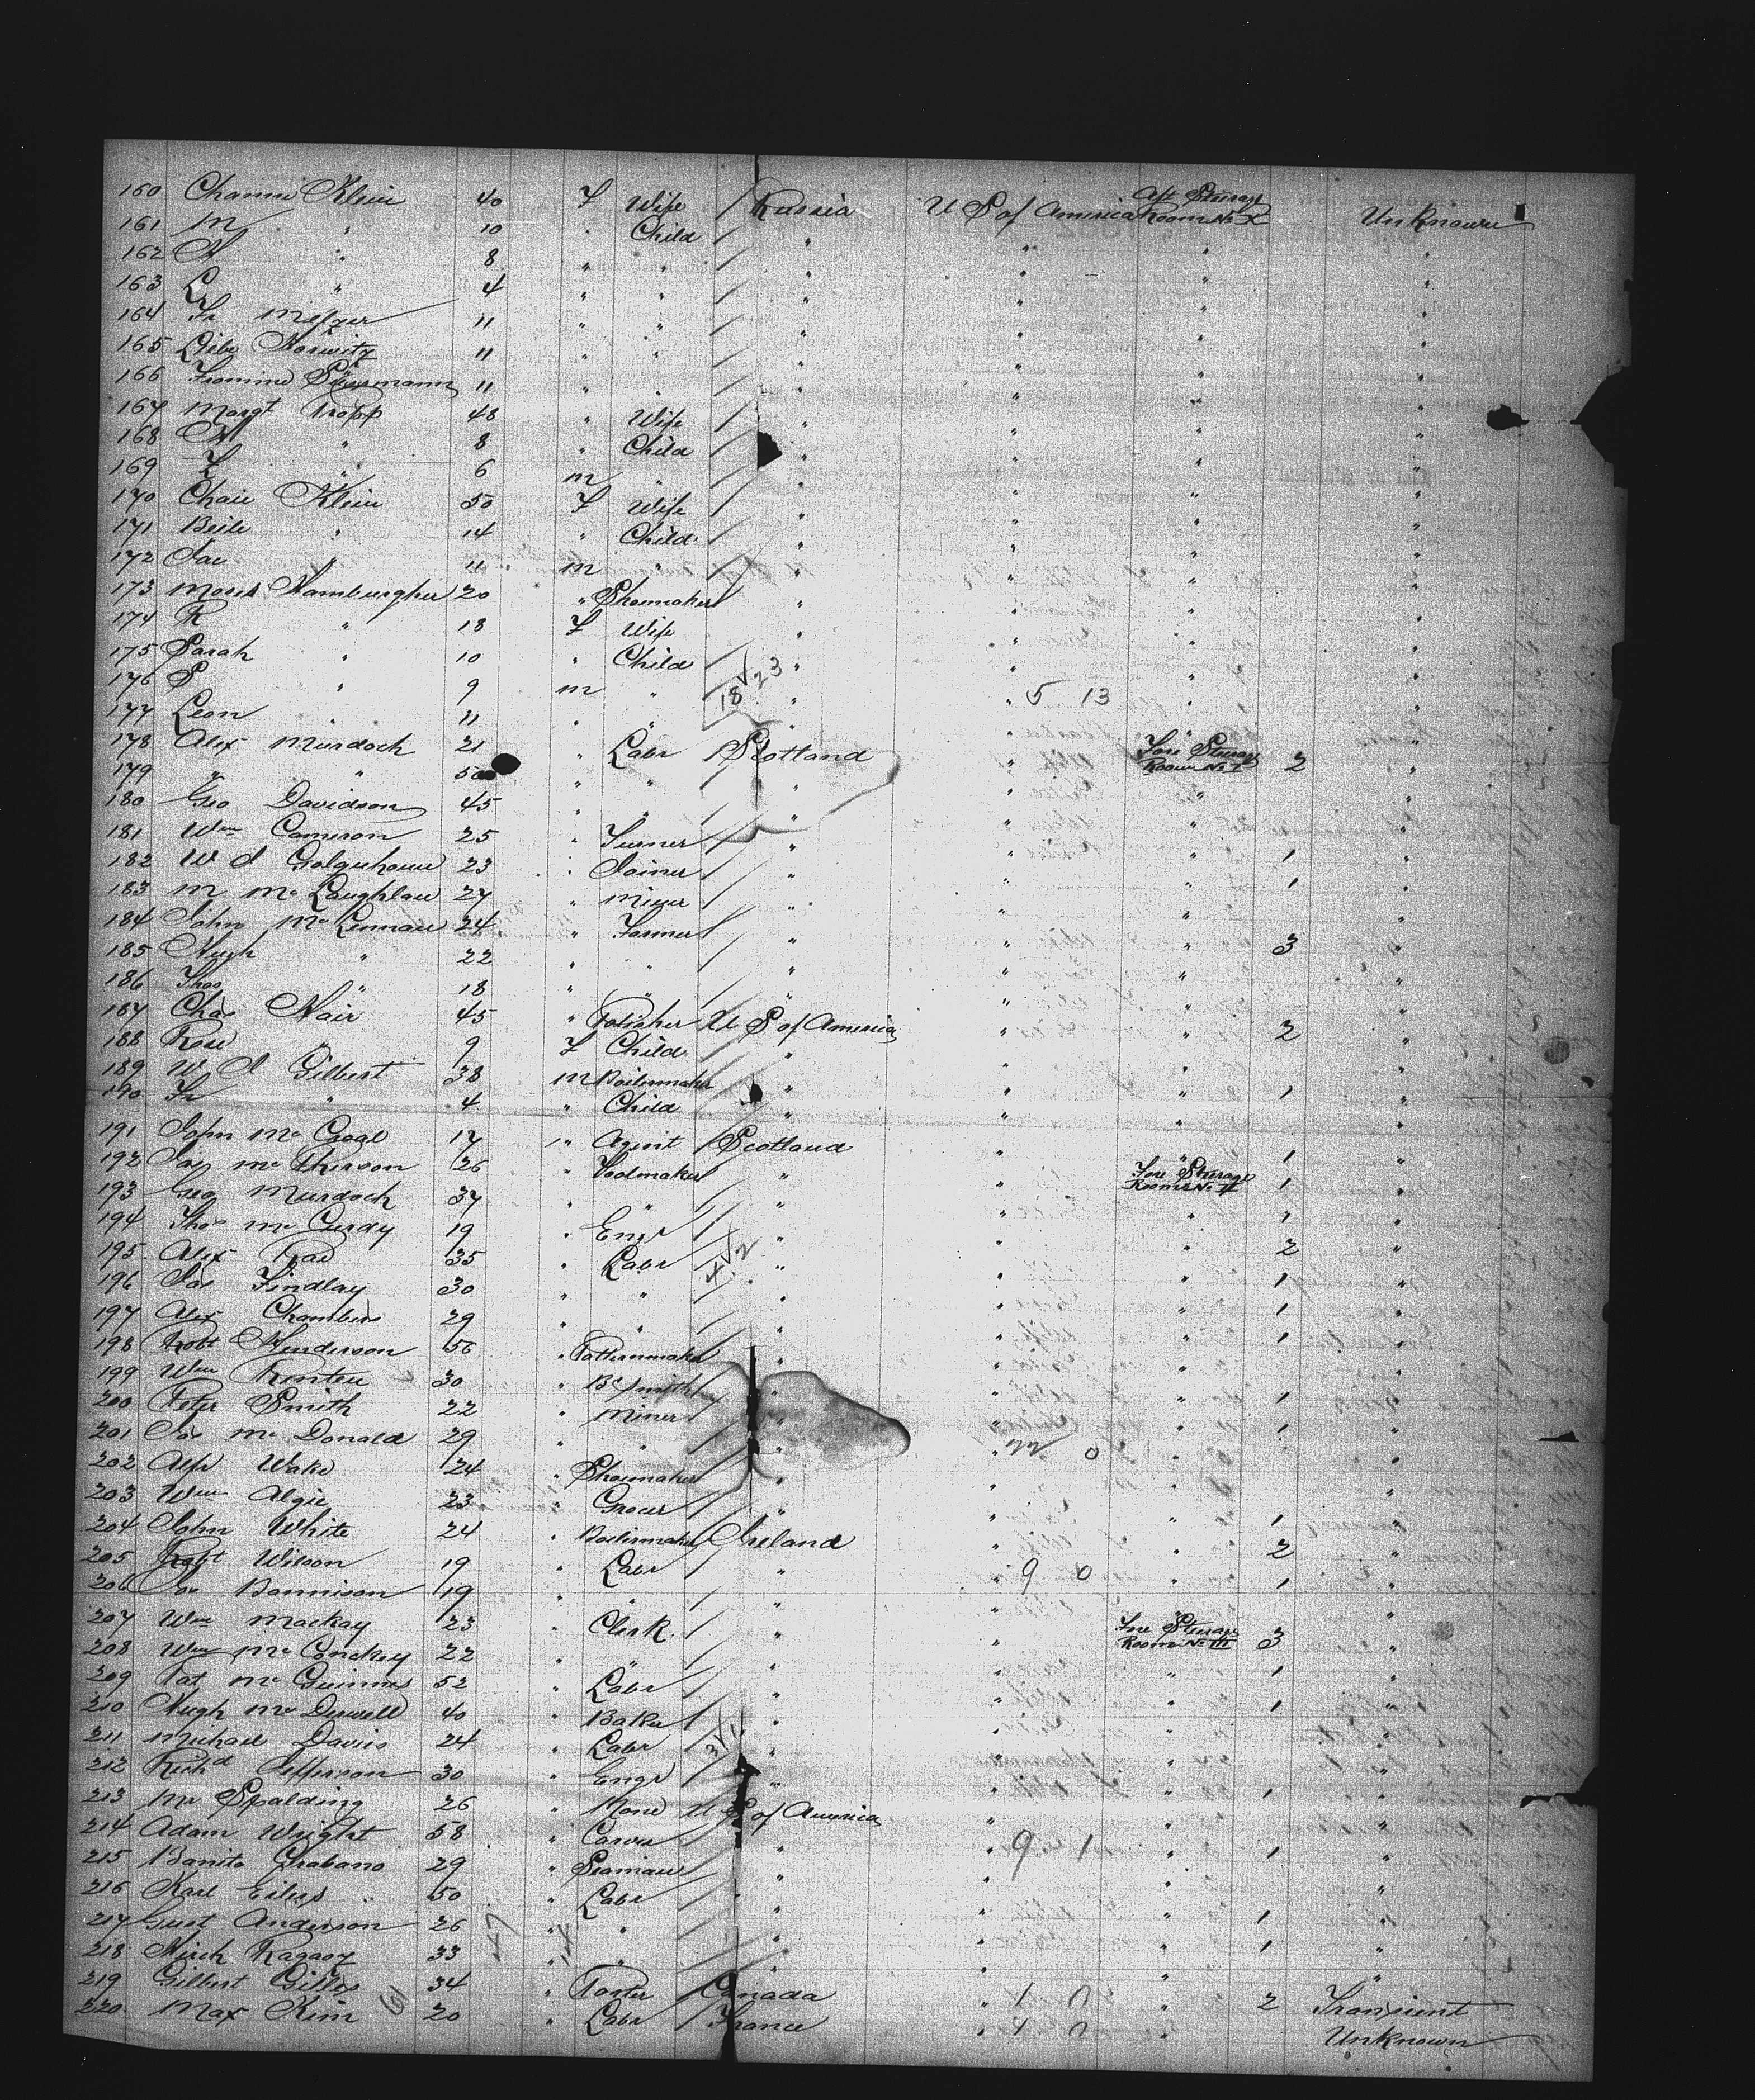 160 Channi Klein 40 F Wife Russia U S of America Aft Steerage Room No X Unknown
161 M " 10 " Child " " " "
162 N " 8 " " " " " "
163 L " 4 " " " " " "
164 Fr Melzer 11 " " " " " "
165 Liebe Horwitz 11 " " " " " "
166 11 " " " " " "
167 Margt Propp 48 " Wife " " " "
168 N " 8 " Child " " " "
169 F " 6 m " " " " "
170 Chaie Klein 50 F Wife " " " "
171 Beile " 14 " Child " " " "
172 Jac " 11 m " " " " "
173 Moses Hamburgher 20 " Shoemaker " " " "
174 R " 18 F Wife " " " "
175 Sarah " 10 " Child " " " "
176 S " 9 m " 18 √ 23 " " 5 13 " "
177 Leon " 11 " " " " " "
178 Alex Murdoch 21 " Labr Scotland " Fore Steerage Room No I 2 "
179 " " 50 " " " " " "
180 Geo Davidson 45 " " " " " "
181 Wm Cameron 25 " Turner " " " 1 "
182 W J Colquhoun 23 " Joiner " " " 1 "
183 M McLaughlan 27 " Miner " " " "
184 John McLennan 24 " Farmer " " " 3 "
185 Hugh " 22 " " " " " "
186 Thos " 18 " " " " " "
187 Chas Nair 45 " Polisher U S of America " " 2 "
188 Rose " 9 F Child " " " "
189 W J Gilbert 38 m Boilermaker " " " 1 "
190 Fr " 4 " Child " " " "
191 John McCaal 17 " Agent Scotland " " 1 "
192 Jas McPherson 26 " Toolmaker " " Fore Steerage Room No II 1 "
193 Geo Murdoch 37 " " " " " 1 "
194 Thos McCurdy 19 " Engr " " " 2 "
195 Alex Rae 35 " Labr 4 √ 2 " " " 1 "
196 Jas Findlay 30 " " " " " 1 "
197 Alex Chambers 29 " " " " " 1 "
198 Robt Henderson 56 " Patternmaker " " " "
199 Wm Renten 30 " Bksmith " " " 1 "
200 Peter Smith 22 " Miner " " " 1 "
201 Jas McDonald 29 " " " " 22 0 " "
202 Alfr Wake 24 " Shoemaker " " " "
203 Wm Algie 23 " Grocer " " " 1 "
204 John White 24 " Boilermaker Ireland " " 2 "
205 Robt Wilson 19 " Labr " " 9 0 " 1 "
206 Jas Bannison 19 " " " " " "
207 Wm Mackay 23 " Clerk " " Fore Steerage Room No III 3 "
208 Wm McConchey 22 " " " " " 1 "
209 Pat McGuinnes 52 " Labr " " " 1 "
210 Hugh McDowell 40 " Baker " " " "
211 Michael Davies 24 " Labr " " " "
212 Richd Jefferson 30 " Engr " " " 1 "
213 Mr Spalding 26 " None U S of America " " "
214 Adam Wright 58 " Carver " " 9 1 " 1 "
215 Banito Grabano 29 " Seaman " " " "
216 Karl Eilers 50 " Labr " " " 1 "
217 Gust Anderson 26 47 " 14 " " " " 1 "
218 33 " " " " " "
219 Gilbert Gilles 34 " Porter Canada " 1 0 " 2 Transient
220 Max Kim 61 20 " Labr France " 1 0 " Unknown